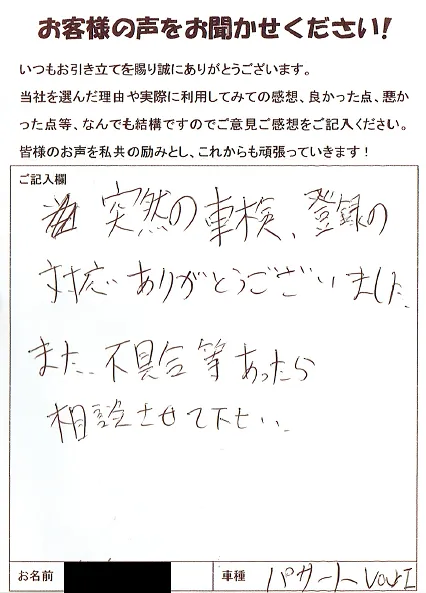 お客様の声をお聞かせください!
いつもお引き立てを賜り誠にありがとうございます。
当社を選んだ理由や実際に利用してみての感想、良かった点、悪か
った点等、なんでも結構ですのでご意見ご感想をご記入ください。
皆様のお声を私共の励みとし、これからも頑張っていきます!
ご記入欄
突然の車検、登録の
対応ありがとうございました。
また、不具合等あったら
相談させて下さい。
お名前
車種 パサート